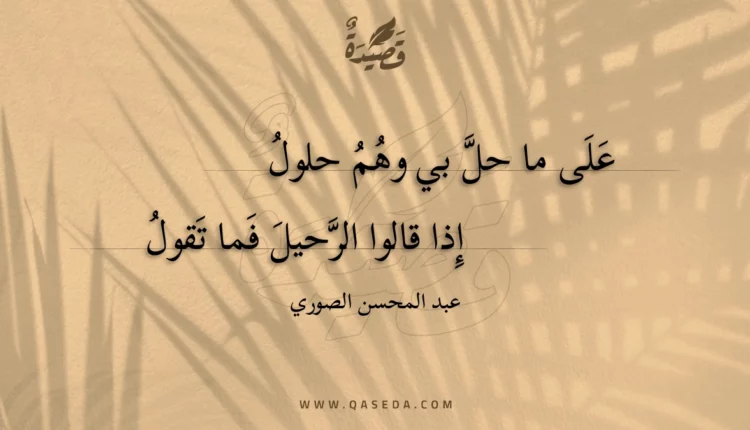 قَصِيْدَةٌ
عَلَى ما حلَّ بي وهُمُ حلولُ
إِذا قالوا الرَّحيلَ فَما تَقولُ
عبد المحسن الصوري
WWW.QASEDA.COM